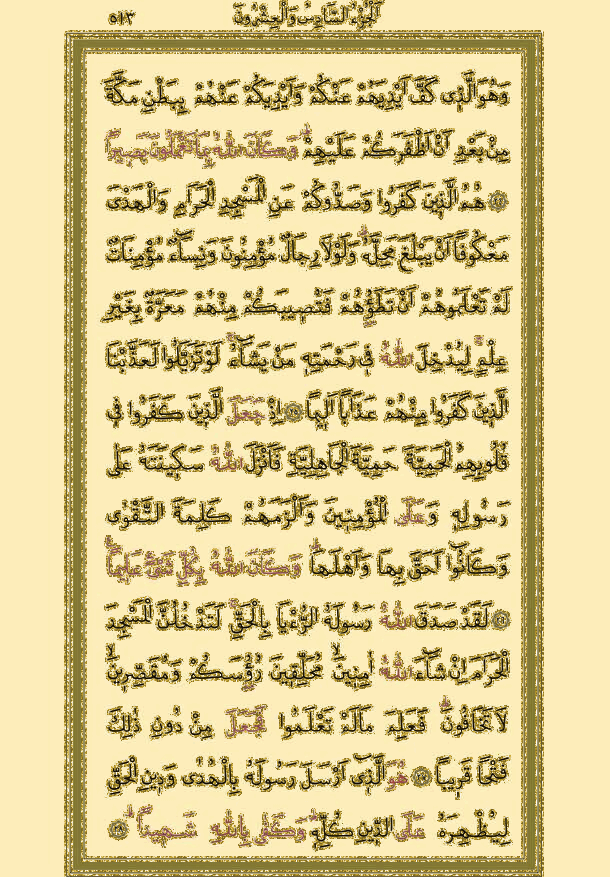 ٥١٣ اَلْجُزْءُ السَّادِسُ وَالْعِشْرُونَ
وَهُوَ الَّذِى كَفَّ اَيْدِيَهُمْ عَنْكُمْ وَاَيْدِيَكُمْ عَنْهُمْ بِبَطْنِ مَكَّةَ
مِنْ بَعْدِ اَنْ اَظْفَرَكُمْ عَلَيْهِمْ وَكَانَ اللّٰهُ بِمَا تَعْمَلُونَ بَصِيرًا
﴿٢٤﴾ هُمُ الَّذِينَ كَفَرُوا وَصَدُّوكُمْ عَنِ الْمَسْجِدِ الْحَرَامِ وَالْهَدْىَ
مَعْكُوفًا اَنْ يَبْلُغَ مَحِلَّهُ وَلَوْلَا رِجَالٌ مُؤْمِنُونَ وَنِسَٓاءٌ مُؤْمِنَاتٌ
لَمْ تَعْلَمُوهُمْ اَنْ تَطَؤُهُمْ فَتُصِيبَكُمْ مِنْهُمْ مَعَرَّةٌ بِغَيْرِ
عِلْمٍ لِيُدْخِلَ اللّٰهُ فِى رَحْمَتِهِ مَنْ يَشَٓاءُ لَوْ تَزَيَّلُوا لَعَذَّبْنَا
الَّذِينَ كَفَرُوا مِنْهُمْ عَذَابًا اَلِيمًا ﴿٢٥﴾ اِذْ جَعَلَ الَّذِينَ كَفَرُوا فِى
قُلُوبِهِمُ الْحَمِيَّةَ حَمِيَّةَ الْجَاهِلِيَّةِ فَاَنْزَلَ اللّٰهُ سَكِينَتَهُ عَلٰى
رَسُولِهِ وَعَلَى الْمُؤْمِنِينَ وَاَلْزَمَهُمْ كَلِمَةَ التَّقْوٰى
وَكَانُٓوا اَحَقَّ بِهَا وَاَهْلَهَا وَكَانَ اللّٰهُ بِكُلِّ شَىْءٍ عَلِيمًا
﴿٢٦﴾ لَقَدْ صَدَقَ اللّٰهُ رَسُولَهُ الرُّءْيَا بِالْحَقِّ لَتَدْخُلُنَّ الْمَسْجِدَ
الْحَرَامَ اِنْ شَٓاءَ اللّٰهُ اٰمِنِينَ مُحَلِّقِينَ رُؤُسَكُمْ وَمُقَصِّرِينَ
لَا تَخَافُونَ فَعَلِمَ مَا لَمْ تَعْلَمُوا فَجَعَلَ مِنْ دُونِ ذٰلِكَ
فَتْحًا قَرِيبًا ﴿٢٧﴾ هُوَ الَّذِٓى اَرْسَلَ رَسُولَهُ بِالْهُدٰى وَدِينِ الْحَقِّ
لِيُظْهِرَهُ عَلَى الدِّينِ كُلِّهِ وَكَفٰى بِاللّٰهِ شَهِيدًا ﴿٢٨﴾